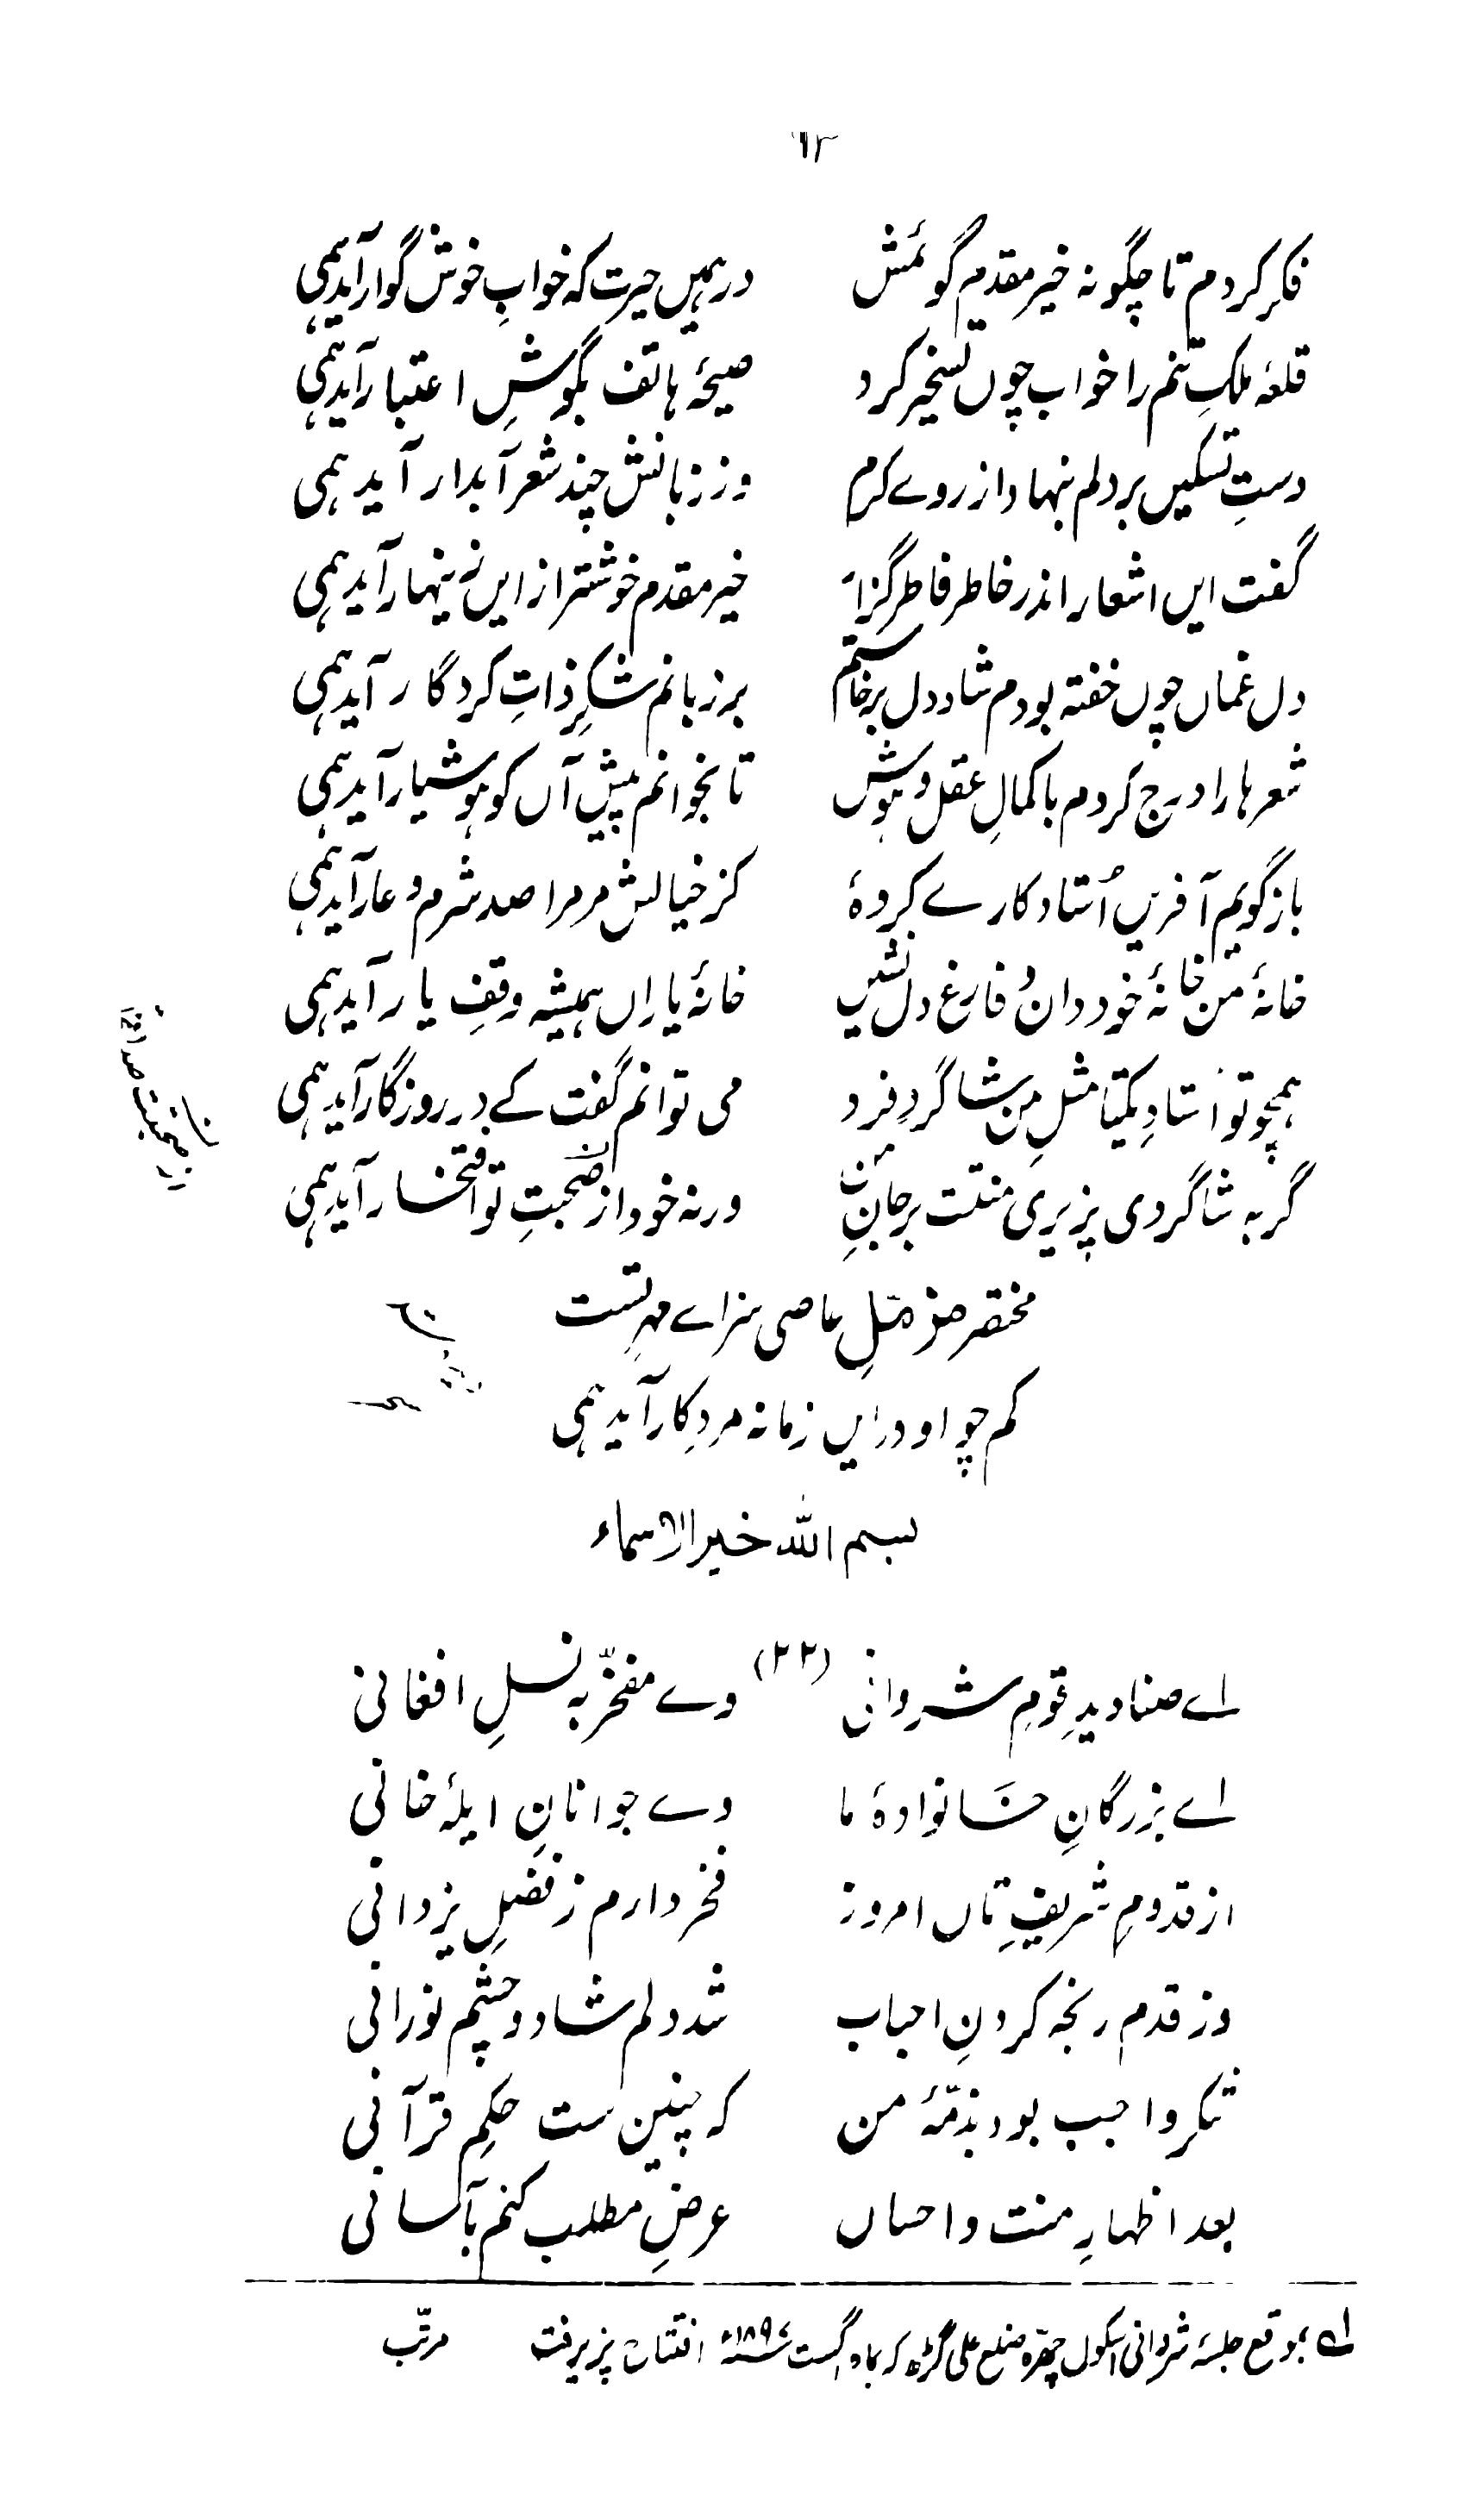 ۶۳
فکر کردم تا چگونه خیر مقدم گویمش در ہمیں حیرت کہ خوابِ خوش گوار آید ہمی
قلعۂ ملکِ تنم را خواب چوں تسخیر کرد صیحۂ ہاتف بگوشِ اعتبار آید ہمی
دستِ تسکیں بر دلم بنہاد از روے کرم وز زبانش چند شعر آبدار آید ہمی
گفت ایں اشعار اندر خاطرِ فاطر گزار خیر مقدم خوشتر از ایں نہ پنہار آید ہمی
دل غماں چوں خفتہ بودم شاد دل برخاستم بر زبانم شکرِ ذاتِ کردگار آید ہمی
شعرہا را درج کردم با کمالِ عقل و ہوش تا بخوانم پیشِ آں کو ہوشیار آید ہمی
باز گویم آفریں اُستاد کارے کردۂ کز خیالش مرمرا صد شرم و عار آید ہمی
خانۂ من خانۂ خود دان و فارغ دل نشیں خانۂ یاراں ہمیشہ وقفِ یار آید ہمی
ہمچو تو اُستادِ یکتا مثلِ من شاگردِ فرد می توانم گفت کے در روزگار آید ہمی
گر بہ شاگردی پزیری منتت بر جانِ من ورنہ خود از صحبتِ تو افتخار آید ہمی
مختصر مزملِ عاصی سزاے مہرِ تست
کم چو او دریں زمانہ مردِ کار آید ہمی
بسم اللہ خیر الاسماء
(۲۲)
اے صنادیدِ قومِ شروانی وے مفخّر بہ نسلِ افغانی
اے بزرگانِ خانوادۂ ما وے جوانانِ ایلۂ خانی
از قدومِ شریفِ تاں امروز فخر دارم ز فضلِ یزدانی
وز قدم رنجہ کردنِ احباب شد دلم شاد و چشم نورانی
شکر واجب بود بذمّۂ من کہ چنین ست حکمِ قرآنی
بعد اظہارِ منت و احساں عرضِ مطلب کنم بآسانی
لہ بموقع جلسۂ شروانی اسکول چھرہ ضلع علی گڑھ کہ بماہ اگست ۱۸۵۹ء افتتاح پزیرفت مرتّب